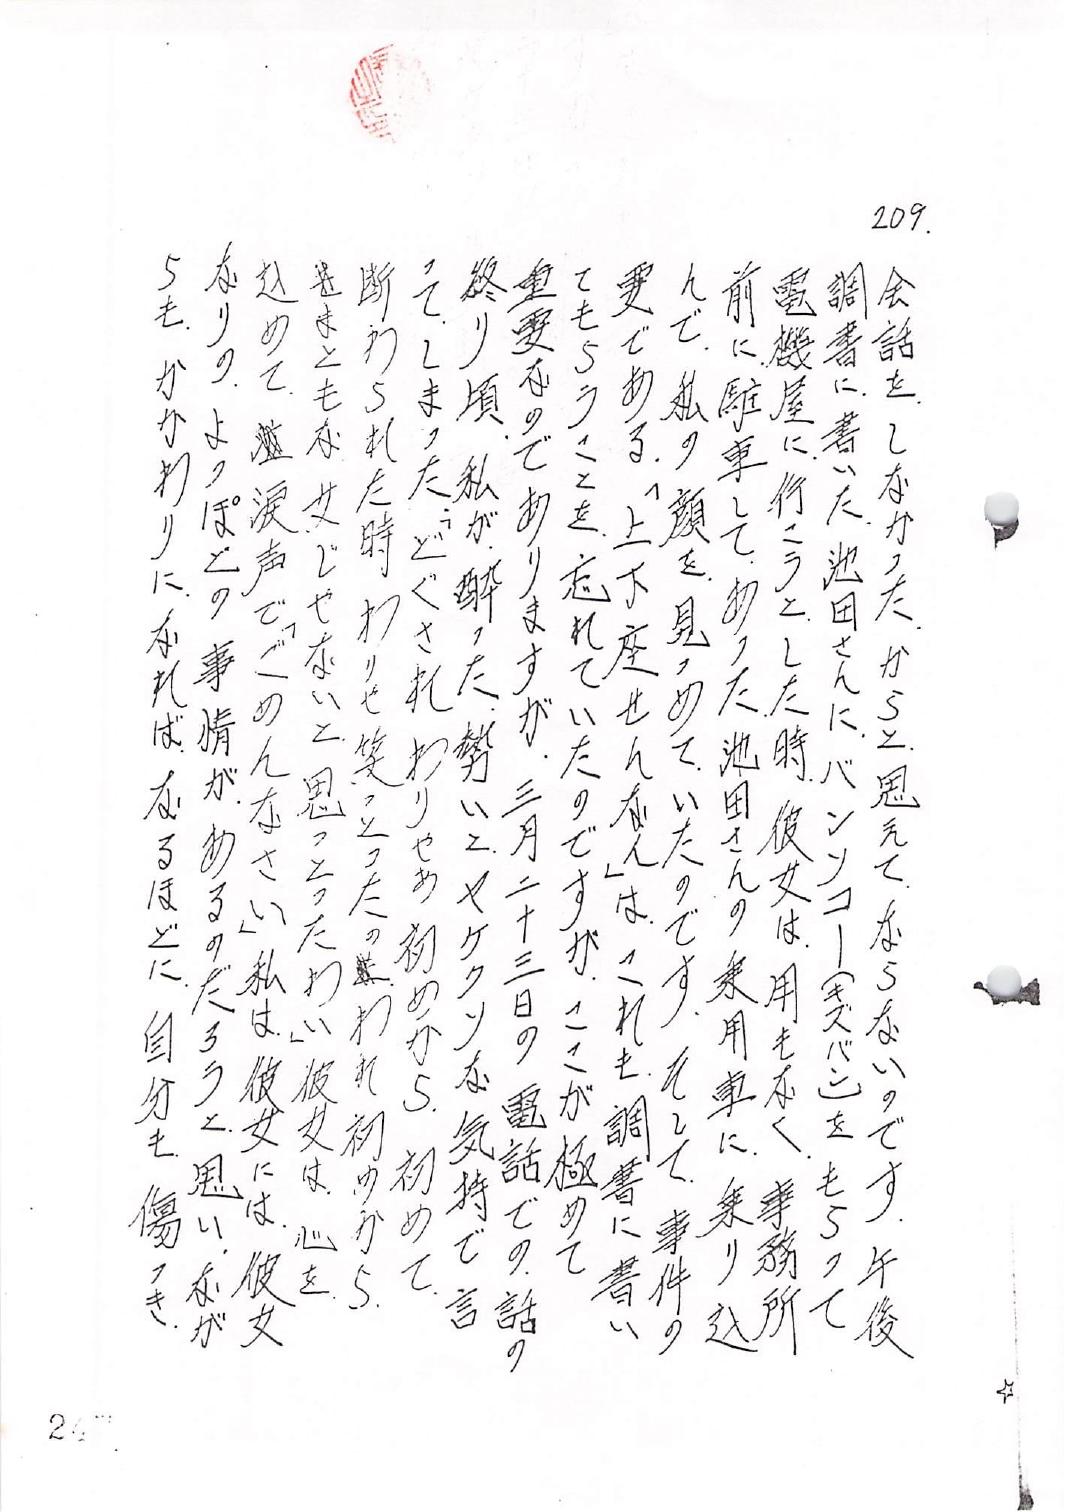 209.
会話を、しなかった、からと、思えて、ならないのです。午後
調書に、書いた、池田さんに、バンソコー(キズバン)を、もらって
電機屋に、行こうと、した時、彼女は、用もなく、事務所
前に、駐車して、あった、池田さんの、乗用車に、乗り込
んで、私の、顔を、見つめて、いたのです。そして、事件の
要である、「上下座せんなん」は、これも、調書に、書い
てもらうことを、忘れていたのですが、ここが、極めて
重要なのでありますが、三月二十三日の、電話での、話の
終り頃、私が、酔った、勢いと、ヤケクソな、気持で、言
って、しまった、「どぐされ、わりゃあ、初めから、初めて、
断わられた時、わりゃ笑っとったの、われ、初めから、
まともな、女じゃないと、思っとったわい」彼女は、心を、
込めて、涙声で、「ごめんなさい」私は、彼女には、彼女
なりの、よっぽどの、事情が、あるのだろうと、思い、なが
らも、かかわりに、なれば、なるほどに、自分も、傷つき、